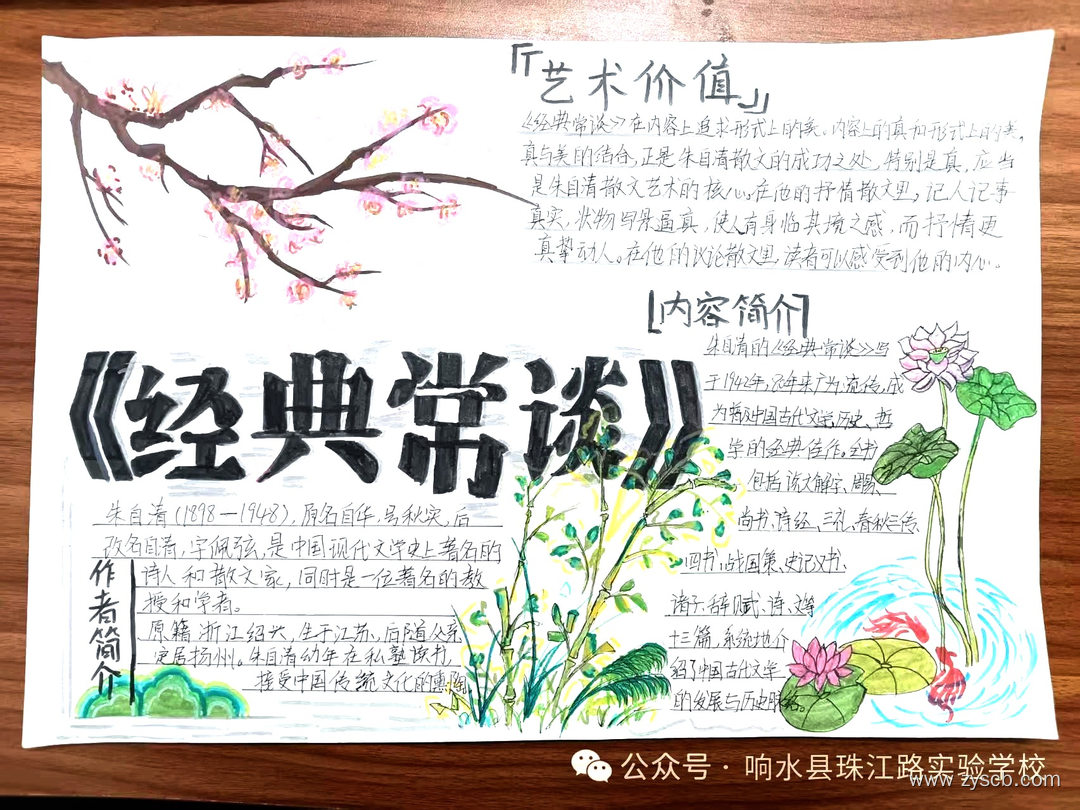 『艺术价值』
《经典常谈》在内容上追求形式上的美。内容上的真和形式上的美,
真与美的结合,正是朱自清散文的成功之处,特别是真,应当
是朱自清散文艺术的核心。在他的抒情散文里,记人记事
真实,状物写景逼真,使人有身临其境之感,而抒情更
真挚动人。在他的议论散文里,读者可以感受到他的内心。
[内容简介]
朱自清的《经典常谈》写
于1942年,年来广为流传,成
为中国古代文学、历史、哲
学的经典佳作。全书
包括说文解字、周易、
尚书、诗经、三礼、春秋三传、
四书、战国策、史记汉书、
诸子、辞赋、诗、文等
十三篇,系统地介
绍了中国古代文学
的发展与历史脉络。
《经典常谈》
作者简介
朱自清(1898—1948),原名自华,号秋实,后
改名自清,字佩弦,是中国现代文学史上著名的
诗人和散文家,同时是一位著名的教
授和学者。
原籍浙江绍兴,生于江苏,后随父亲
定居扬州。朱自清幼年在私塾读书,
接受中国传统文化的熏陶
公众号·响水县珠江路实验学校
www.zyscb.com